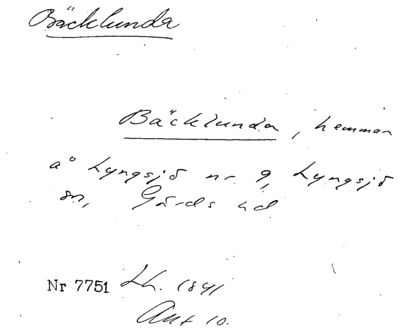 Bäcklunda
Bäcklunda, hemman
å Lyngsjö nr 9, Lyngsjö
sn, Gärds hd.
Nr 7751 Lh. 1841
Ant 10.